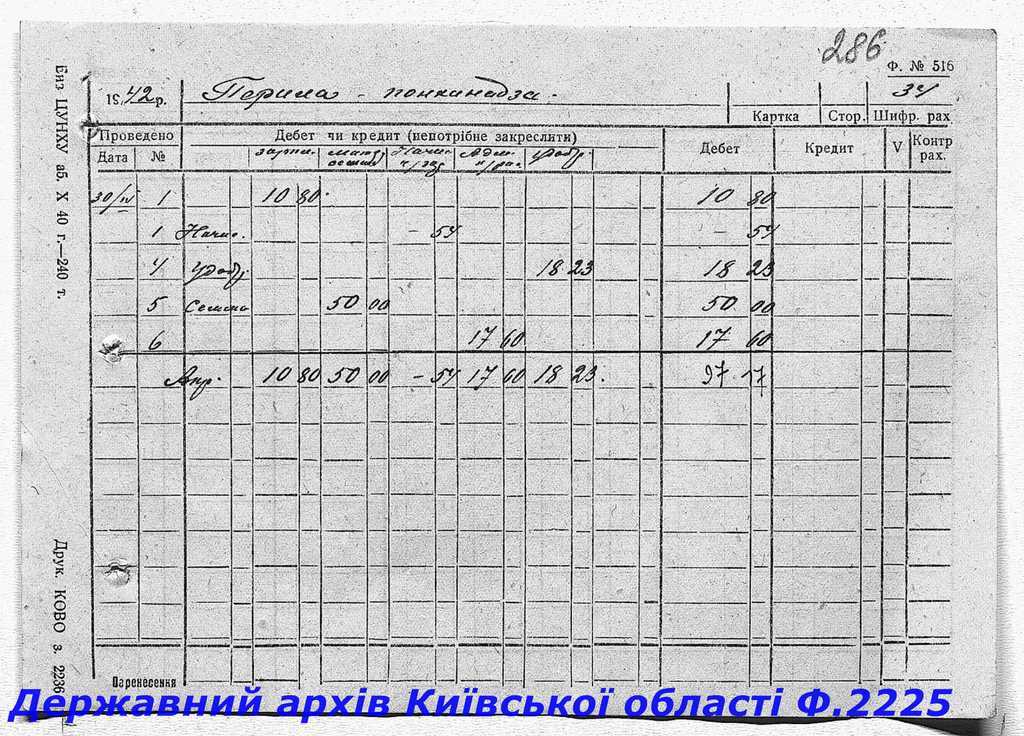 286
Ф. № 516
1942 р. Перила - понкинадза. 34
Картка Стор. Шифр. рах
Проведено Дебет чи кредит (непотрібне закреслити) Дебет Кредит V Контр рах.
Дата №
30/IV 1 10 80 10 80
1 Начис. - 54 - 54
4 18 23 18 23
5 Семена 50 00 50 00
6 17 60 17 60
Апр. 10 80 50 00 - 54 17 60 18 23. 97 17
Паренесення
Биз ЦУНХУ аб. X 40 г.—240 т.
Друк. КОВО з. 2236
Державний архів Київської області Ф.2225